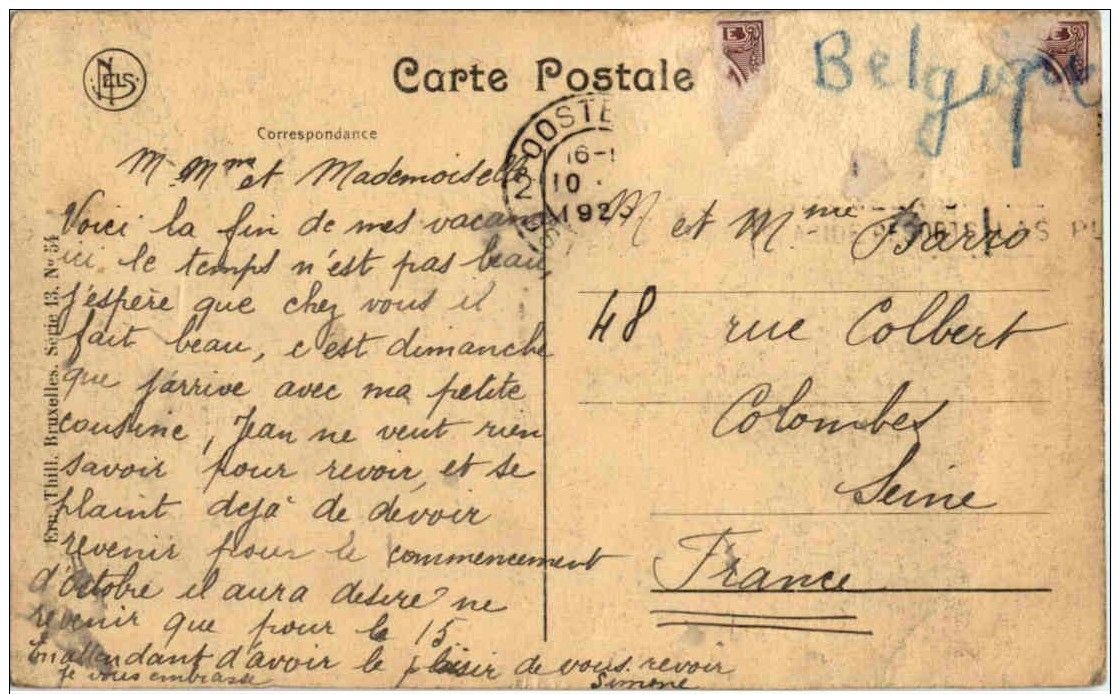 NELS
Carte Postale
Belgique
Correspondance
OOSTE
2
16-1
10
192
M. Mme et Mademoiselle
Voici la fin de mes vacances
ici le temps n'est pas beau,
j'espère que chez vous il
fait beau, c'est dimanche
que j'arrive avec ma petite
cousine, Jean ne veut rien
savoir pour revoir, et se
plaint dejà de devoir
revenir pour le commencement
d'octobre il aura desiré ne
revenir que pour le 15
En attendant d'avoir le plaisir de vous revoir
je vous embrasse
Simone
M et Mme
48 rue Colbert
Colombes
Seine
France
Ern. Thill, Bruxelles. Série 13. No 54